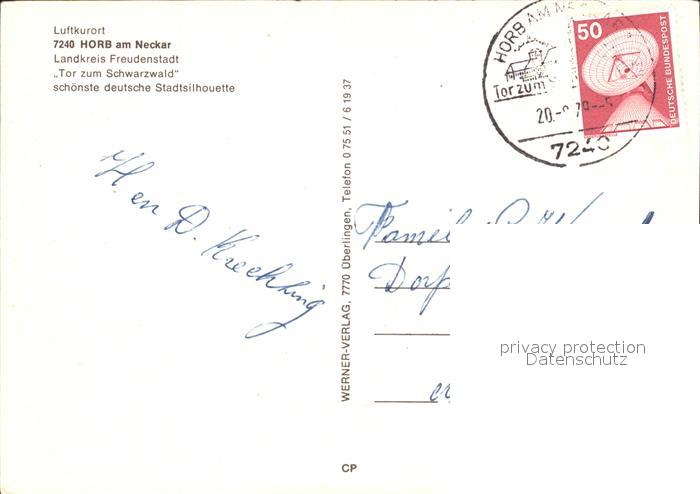 Luftkurort
7240 HORB am Neckar
Landkreis Freudenstadt
„Tor zum Schwarzwald"
schönste deutsche Stadtsilhouette
HORB AM NECKAR
Tor zum
20.-8.79
7240
50
DEUTSCHE BUNDESPOST
H. en D. Krechting
WERNER-VERLAG, 7770 Überlingen, Telefon 0 75 51 / 6 19 37
Dorp
privacy protection
Datenschutz
CP